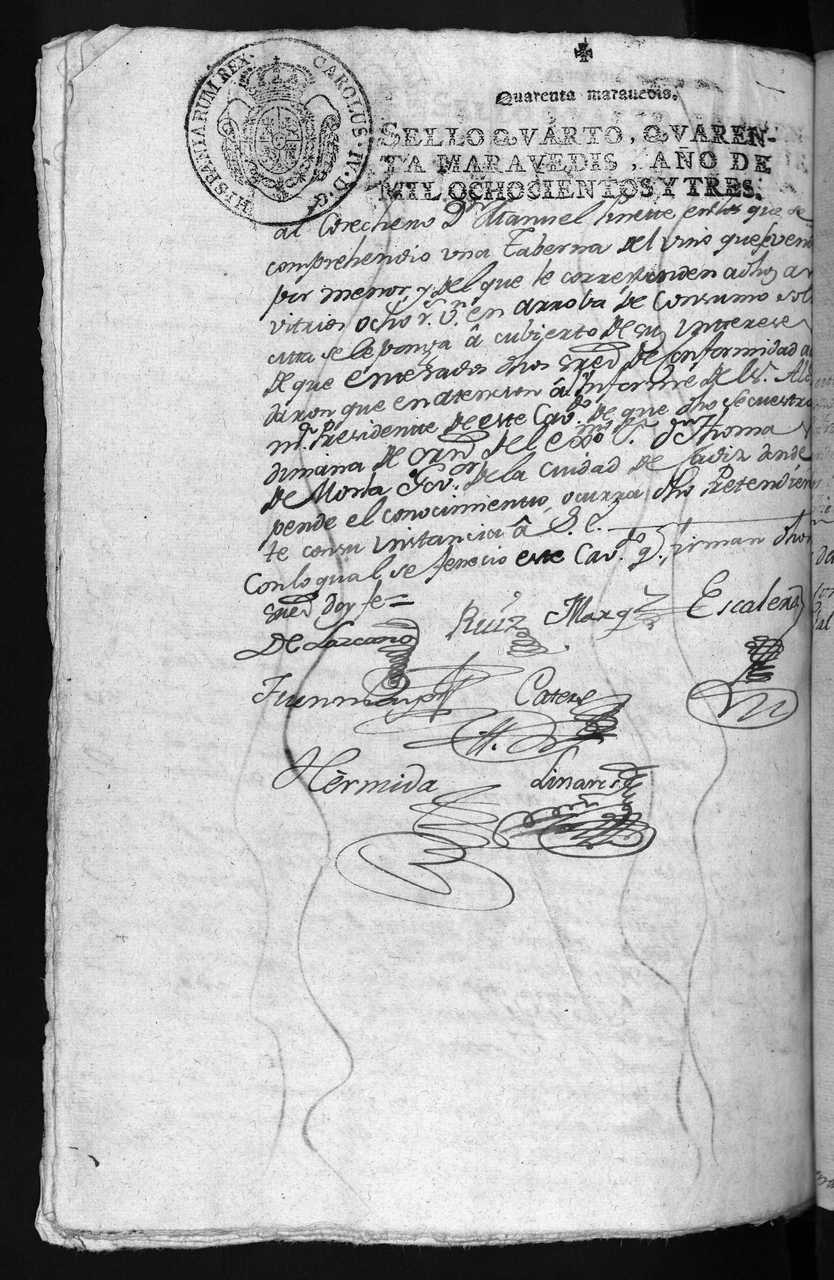 HISPANIARUM REX. CAROLUS. IV. D. G.
Quarenta maravedis.
SELLO QVARTO, QVAREN-
TA MARAVEDIS, AÑO DE
MIL OCHOCIENTOS Y TRES.
al Corechero Dn. Manuel en los que se
comprehendio una Taberna del vino que se vend
por menor, y del que le corresponden adhos ar
vitrios ocho rs. vn. en arroba de Consumo sol
cita se le ponga â cubierto de sus Yntereses
de que enterados dhos sres. de conformidad a
daron que en atencion â Ynforme del Sr. Alc
mr. Presidente de este Cavdo. de que dho Secuestro
dimana de orn. del Exmo. Sr. dn. Thomas
de Morla Govor. de la ciudad de Cadiz donde
pende el conocimiento, ocurra dho Pretendien
te con su Ynstancia â S. E.
Con lo qual se fenecio este Cavdo. q. firman dhos
sres. doy fe =
De Lazcano Ruiz Marqz Escalera
Fuenmayor
Hermida Linares